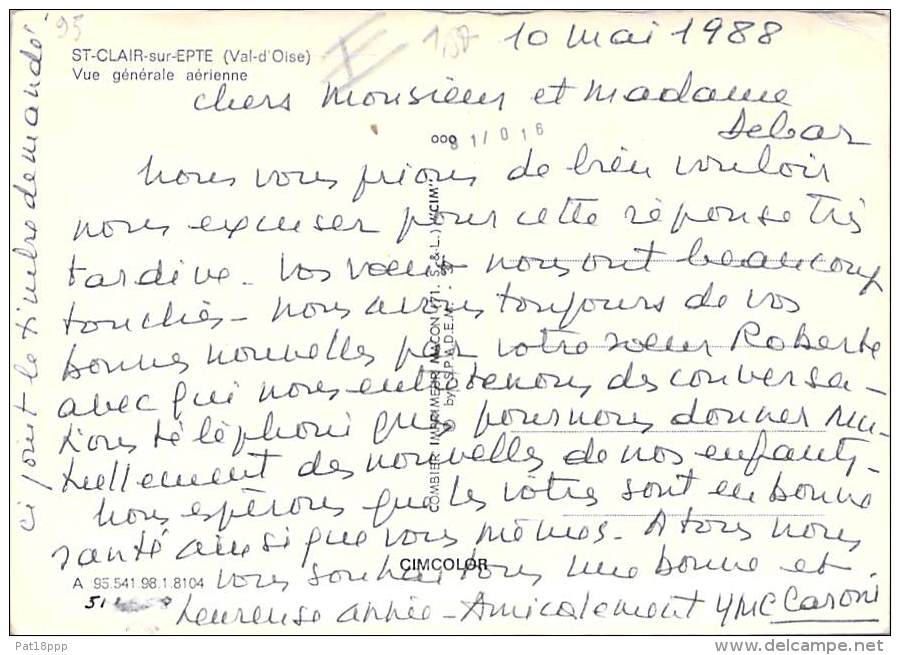 95
ST-CLAIR-sur-EPTE (Val-d'Oise)
Vue générale aérienne
10 mai 1988
chers Monsieur et Madame
Debar
Nous vous prions de bien vouloir
nous excuser pour cette réponse très
tardive. Vos vœux nous ont beaucoup
touchés - nous avons toujours de vos
bonnes nouvelles par votre sœur Roberte
avec qui nous entretenons des conversa-
tions téléphoniques pour nous donner mu-
tuellement des nouvelles de nos enfants -
Nous espérons que les vôtres sont en bonne
santé ainsi que vous mêmes. A tous nous
vous souhaitons une bonne et
heureuse année - Amicalement YMC Caroni
ci joint le timbre demandé
81/016
COMBIER IMPRIMEUR MACON (71. S.-&-L.) "CIM"
© by S.P.A.D.E.M.
CIMCOLOR
A 95.541.98.1.8104
Pat18ppp
delcampe.net